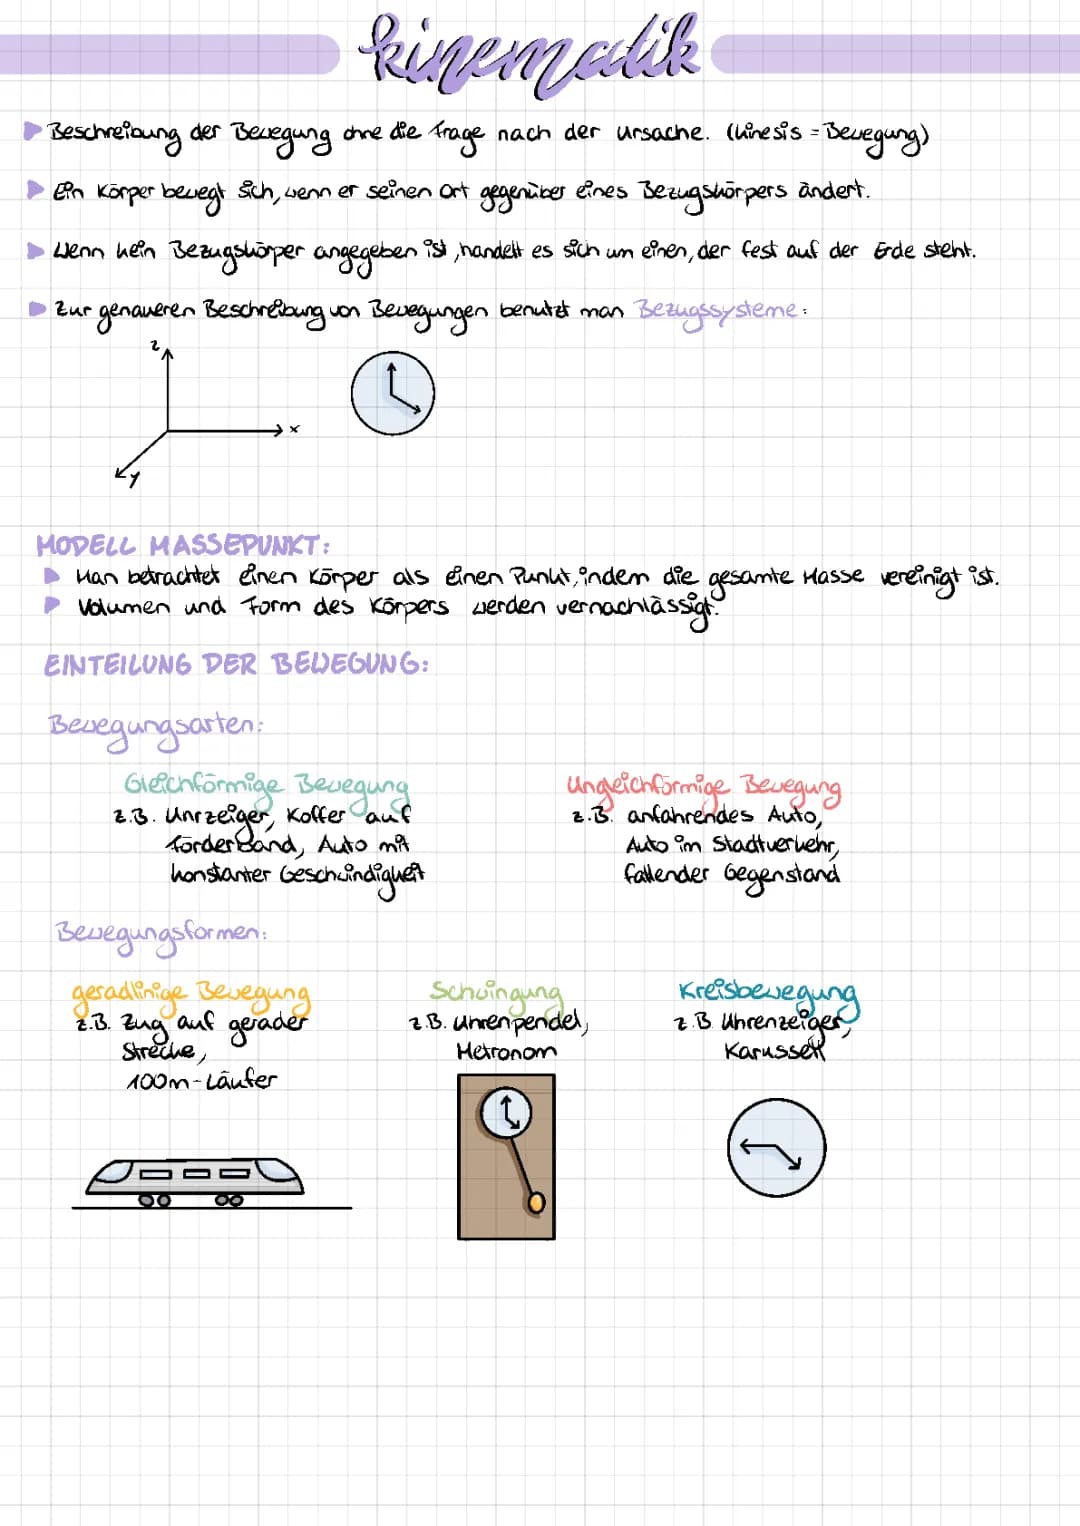 kinematik
Beschreibung der Bewegung ohne die Frage nach der Ursache. (Kinesis = Bewegung)
Ein Körper bewegt sich, wenn er seinen Ort gegenüber eines Bezugskörpers ändert.
Wenn kein Bezugskörper angegeben ist, handelt es sich um einen, der fest auf der Erde steht.
Zur genaueren Beschreibung von Bewegungen benutzt man Bezugssysteme:
z
x
y
MODELL MASSEPUNKT:
Man betrachtet einen Körper als einen Punkt, indem die gesamte Masse vereinigt ist.
Volumen und Form des Körpers werden vernachlässigt.
EINTEILUNG DER BEWEGUNG:
Bewegungsarten:
Gleichförmige Bewegung
z.B. Uhrzeiger, Koffer auf
Förderband, Auto mit
konstanter Geschwindigkeit
Ungleichförmige Bewegung
z.B. anfahrendes Auto,
Auto im Stadtverkehr,
fallender Gegenstand
Bewegungsformen:
geradlinige Bewegung
z.B. Zug auf gerader
Strecke,
100m-Läufer
Schwingung
z.B. Uhrenpendel,
Metronom
Kreisbewegung
z.B Uhrenzeiger,
Karussell